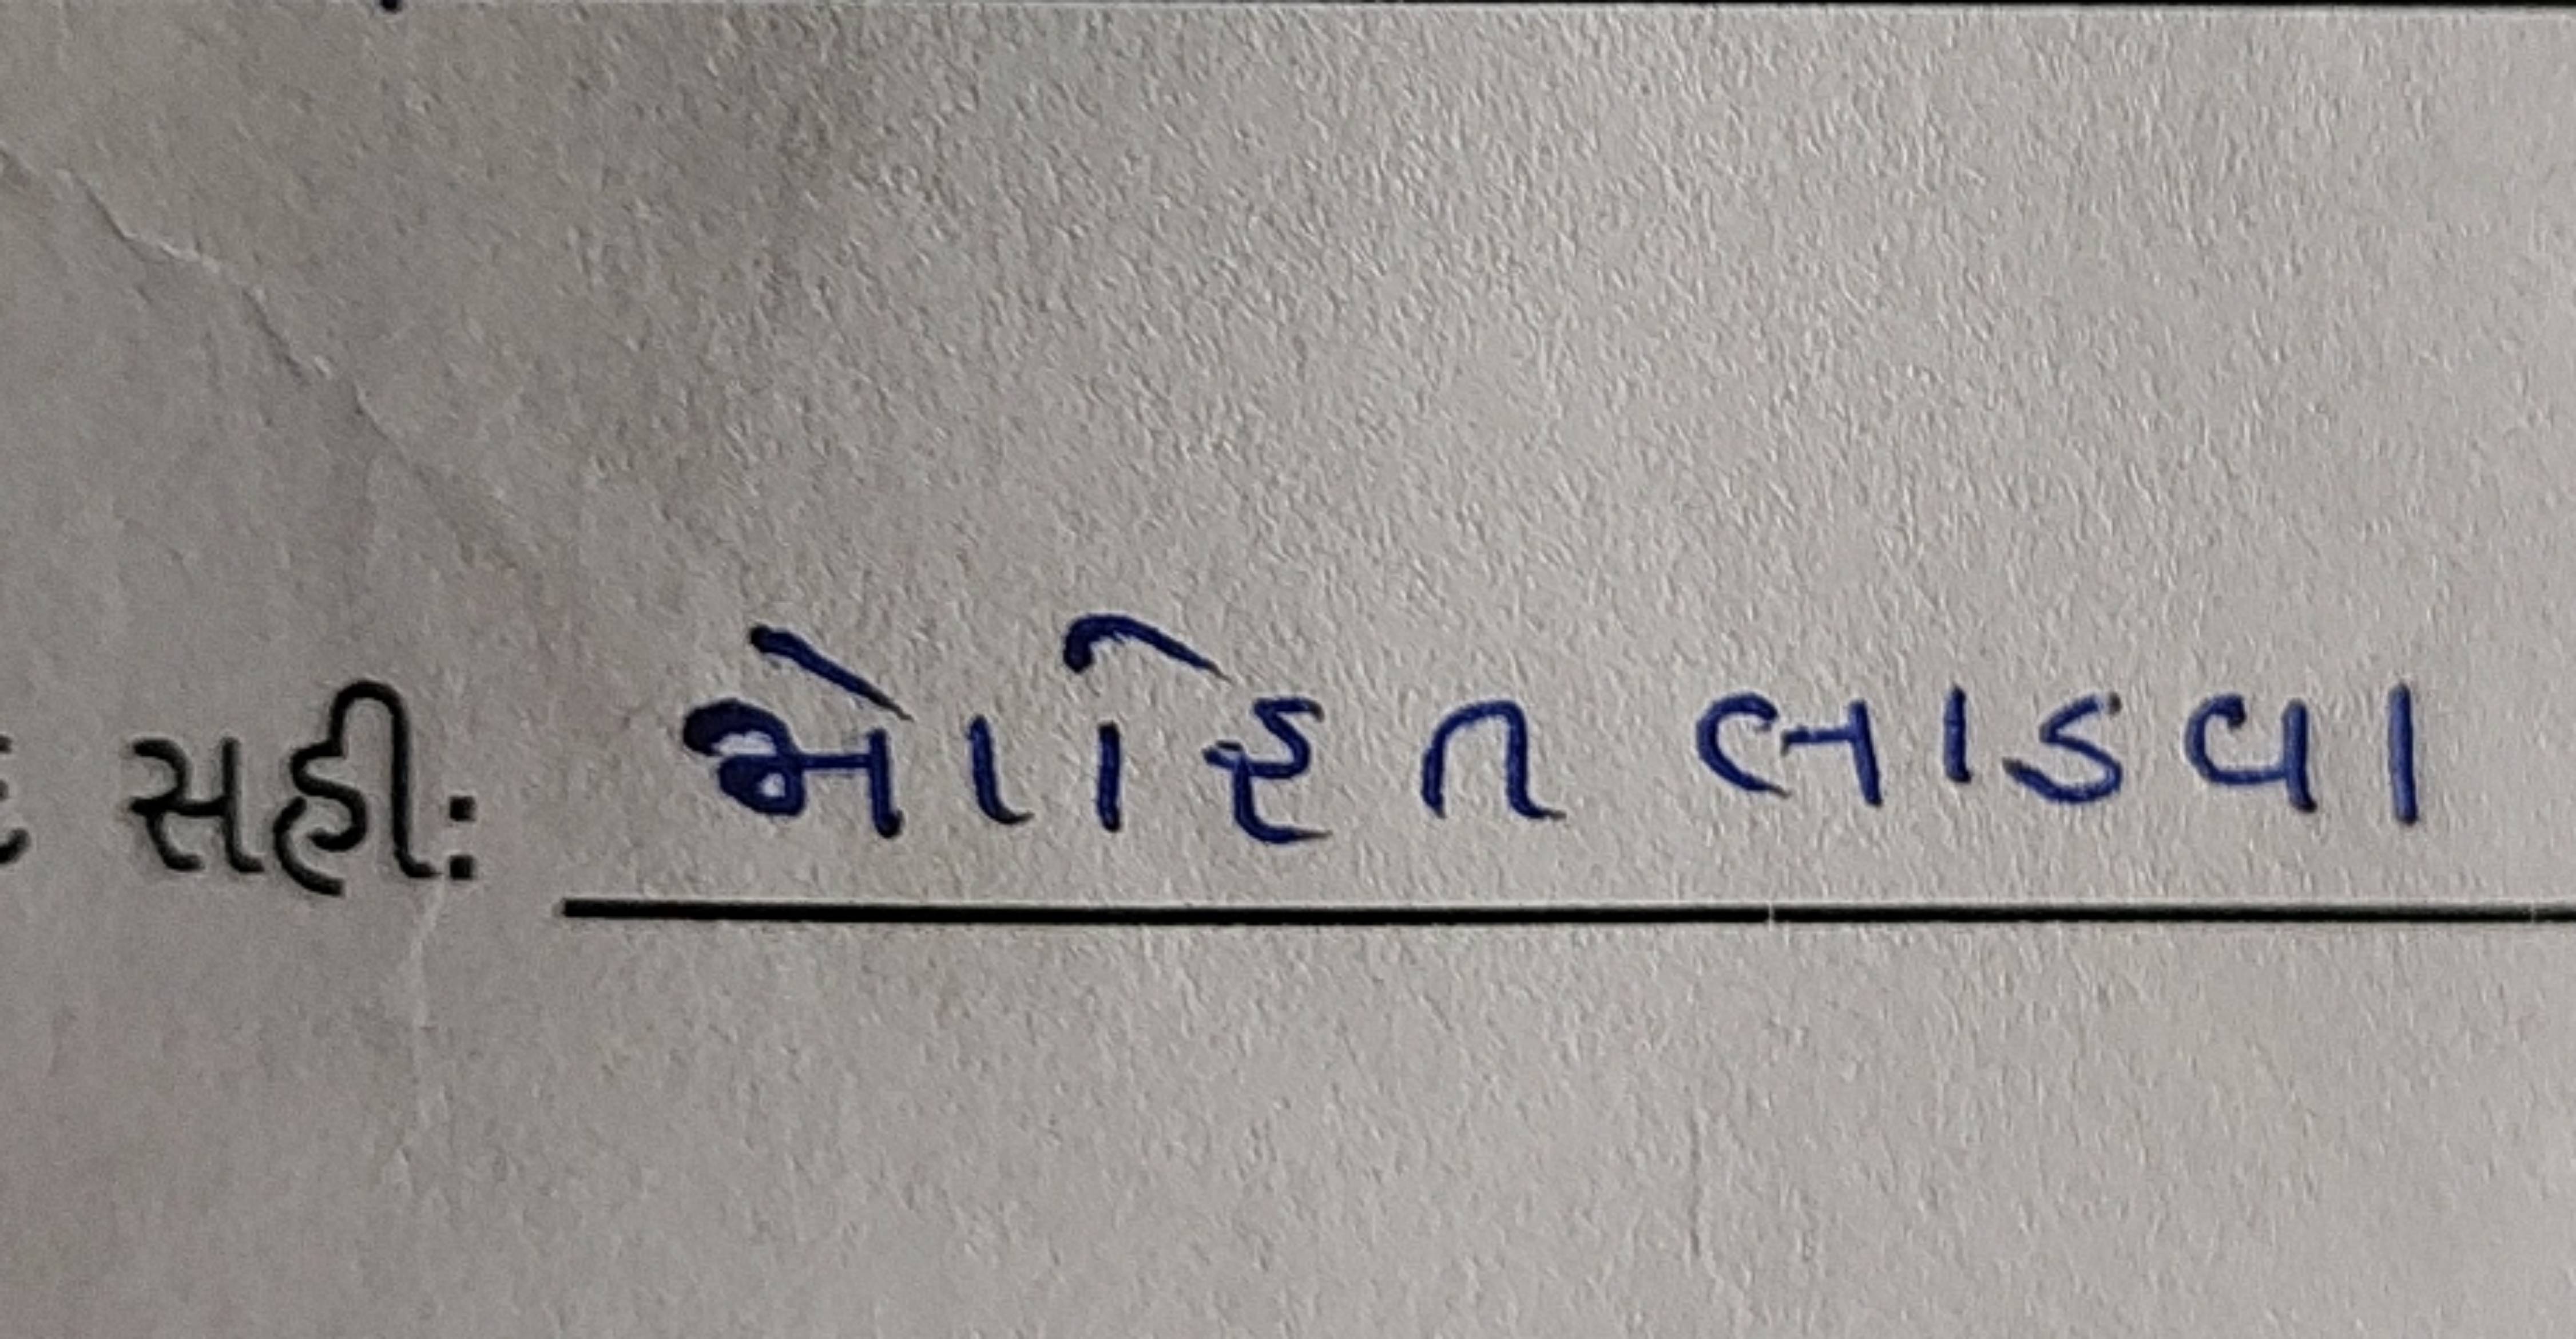 સહી: મોહિત લાડવા